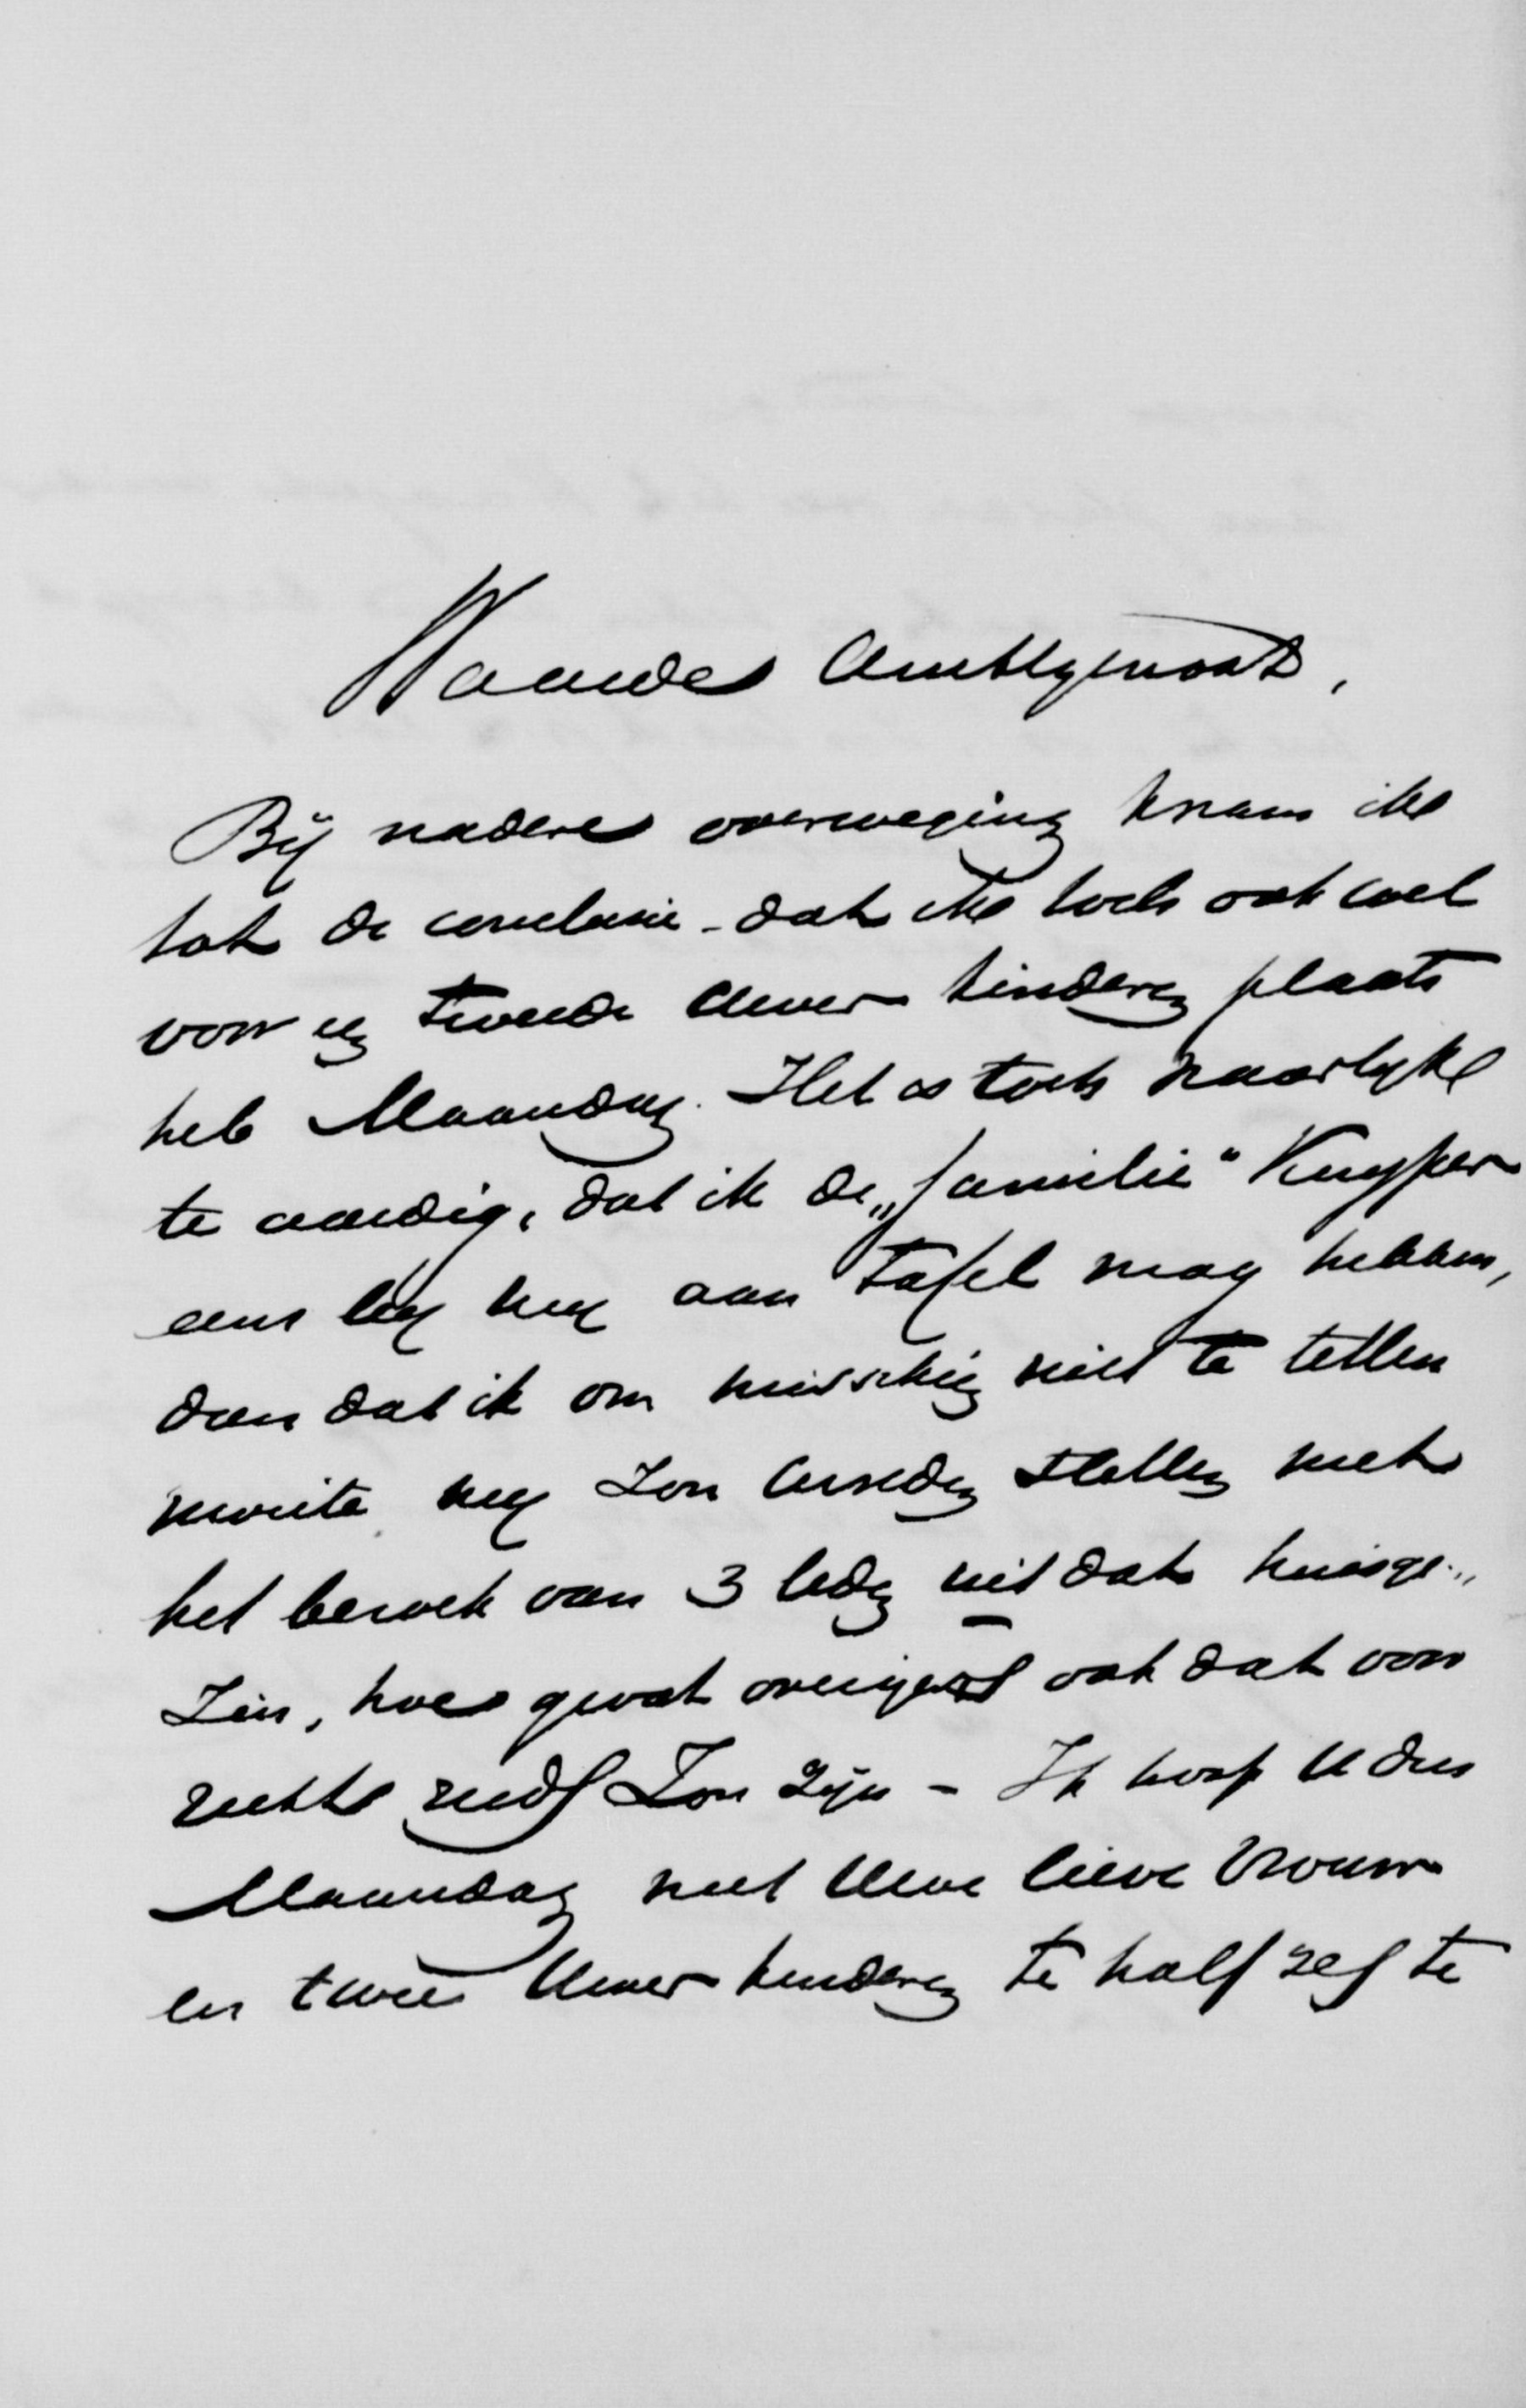 Waarde Ambtgenoot,
Bij nadere overweging kwam ik
tot de conclusie - dat ik toch ook wel
voor een tweede Uwer kinderen plaats
heb Maandag. Het is toch naarlijk
te aardig, dat ik de „familie" Kuyper
eens bij mij aan tafel mag hebben,
dan dat ik om misschien niet te tellen
moeite mij zou tevreden stellen met
het bezoek van 3 leden uit dat huisge-
zin, hoe groot overigens ook dat voor
recht reeds zou zijn - Ik hoop U dus
Maandag met Uwe lieve Vrouw
en twee Uwer kinderen te half zes te